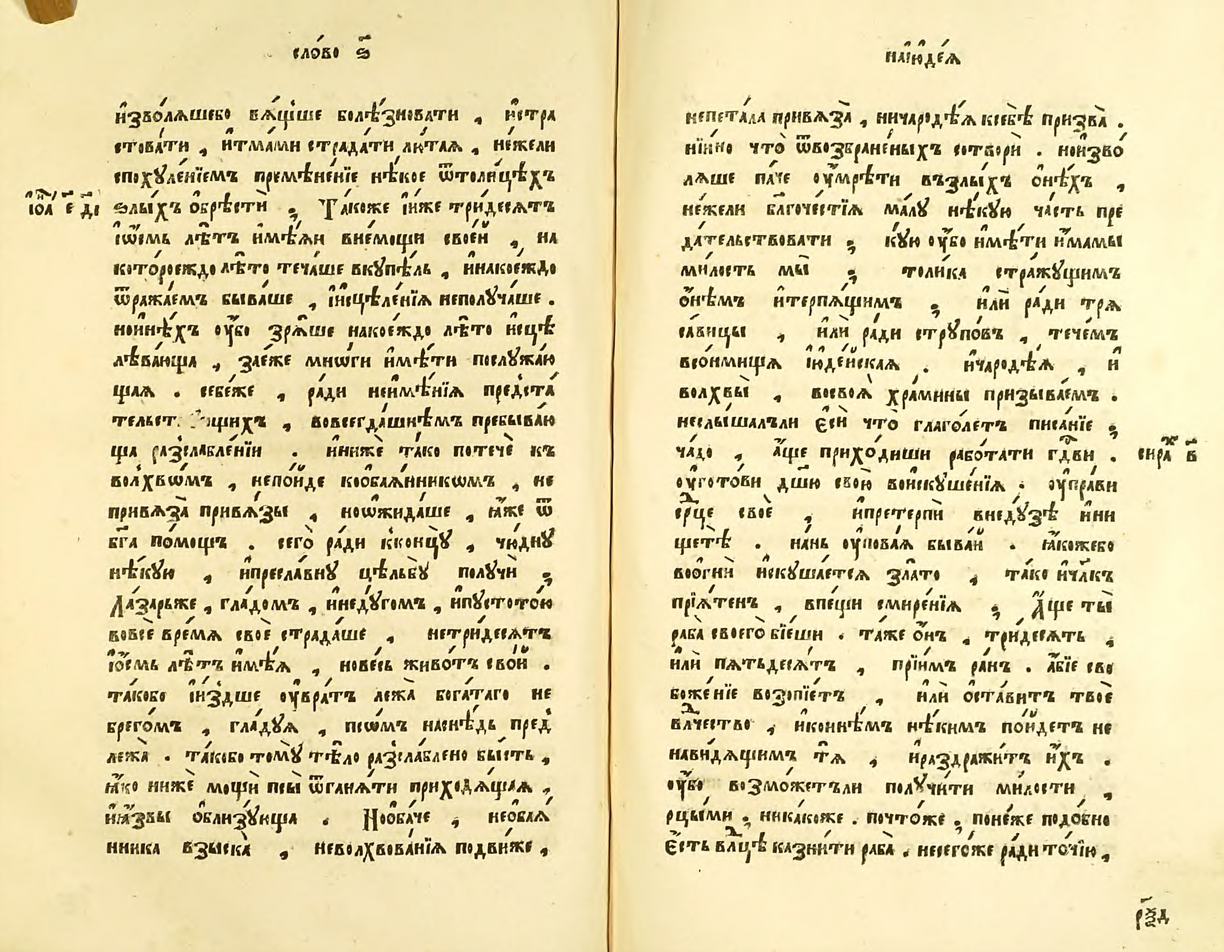 сло́во ѕ҃
и҆зволѧшебо вѧ́щше болѣ́зновати , и҆стра
стова́ти , и҆тма́ми страда́ти лю́таѧ , не́жели
спохуле́нїемъ премѣне́нїе нѣ́кое ѿтоли́цѣхъ
і҆оа҃ є҃ д҃і
ѕлы́хъ о҆брѣсти́ ; Та́коже и҆́иже три́десѧтъ
і҆ѡ́смь лѣ́тъ и҆мѣ́ѧи вне́мощи свое́й , на
кото́роеждо лѣ́то теча́ше вкупѣ́ль , и҆нако́еждо
ѿража́емъ быва́ше , і҆исцѣле́нїѧ неполуча́ше .
нои҆нѣ́хъ ᲂу҆́бо зрѧ́ше нако́еждо лѣ́то и҆сцѣ
лѣва́юща , зане́же мно́ги и҆мѣ́ти послужа́ю
щаѧ . себе́же , ра́ди неи҆мѣ́нїѧ предста́
тельст щихъ , вовсегда́шнѣмъ пребыва́ю
ща разслабле́нїи . и҆ниже та́ко потечѐ къ
волхво́мъ , непои́де кѡбаѧ́нникѡмъ , не
привѧза̀ привѧ́зы , ноѡжида́ше , ꙗ҆́же ѿ
бг҃а по́мощь . сего̀ ра́ди кконцꙋ̀ , чю́днꙋ
нѣ́кую , и҆пресла́внꙋ цѣльбꙋ̀ полꙋчѝ ;
Ла́зарьже , гла́домъ , и҆недꙋ́гомъ , и҆пꙋстото́ю
вовсѐ вре́мѧ своѐ страда́ше , нетри́десѧтъ
і҆ѻ҆́смь лѣ́тъ и҆мѣ́ѧ , нове́сь живо́тъ сво́й .
та́кобо і҆и҆здше ᲂу҆вра́тъ лежа̀ бога́таго не
брего́мъ , гла́дꙋѧ , псѡ́мъ наснѣ́дь пред
лежа̀ . та́кобо томꙋ̀ тѣ́ло разсла́блено бы́сть ,
ꙗ҆́ко нижѐ мощѝ псы̀ ѿганѧ́ти приходѧ́щаѧ ,
и҆ꙗ҆́звы о҆близꙋ́юща . Но́ѻбаче , неѻбаѧ́
нника взыска̀ , неволхвова́нїѧ подви́же ,
наїюде́ѧ
непета́ла привѧза̀ , ничародѣ́ѧ ксебѣ̀ призва̀ .
нїи́но что̀ ѿвозбране́ныхъ сотворѝ . нои҆зво́
лѧше па́че ᲂу҆мре́ти възлы́хъ о҆нѣ́хъ ,
не́жели благоче́стїѧ ма́лꙋ нѣ́кую ча́сть пре
да́тельствовати ; кꙋ́ю ᲂу҆́бо и҆мѣ́ти и҆́мамы
ми́лость мы̀ ; толи́ка стра́жꙋщимъ
о҆нѣ́мъ и҆терпѧ́щимъ ; и҆лѝ ра́ди трѧ
сави́цы , и҆лѝ ра́ди стрꙋ́повъ , тече́мъ
всо́нмищѧ і҆юде́йскаѧ . и҆чародѣ́ѧ , и҆
волхвы̀ , восвоѧ̀ хра́мины призыва́емъ .
неслы́шалъли є҆сѝ что̀ глаго́летъ писа́нїе ;
ча́до , а҆́ще прихо́диши рабо́тати гдⷭ҇ви .
сира́х҃ в҃
ᲂу҆гото́ви дш҃ю свою̀ воискꙋше́нїѧ . ᲂу҆пра́ви
ср҃це своѐ , и҆претерпѝ внедꙋ́зѣ и҆ни
щетѣ̀ . на́нь ᲂу҆пова́ѧ быва́й . ꙗ҆́кожебо
воо҆гнѝ и҆скꙋша́етсѧ зла́то , та́ко и҆чл҃къ
прїѧ́тенъ , впещѝ смире́нїѧ ; А҆́ще ты̀
раба̀ своего̀ бїе́ши . та́же о҆́нъ , три́десѧть ,
и҆лѝ пѧтьдесѧ́тъ , прїи́мъ ра́нъ . а҆́бїе сво
боже́нїе возопїе́тъ , и҆лѝ о҆ста́витъ твоѐ
влⷣчество , и҆кои҆нѣ́мъ нѣ́кимъ по́йдетъ не
нави́дѧщимъ тѧ̀ , и҆раздражи́тъ и҆́хъ .
ᲂу҆́бо возмо́жетъли полꙋчи́ти ми́лости ,
рцы́ми ; ника́коже . почто́же ; поне́же подо́бно
є҆́сть влⷣцѣ казни́ти раба̀ . несего́же ра́ди то́чїю ,
рѯ҃д